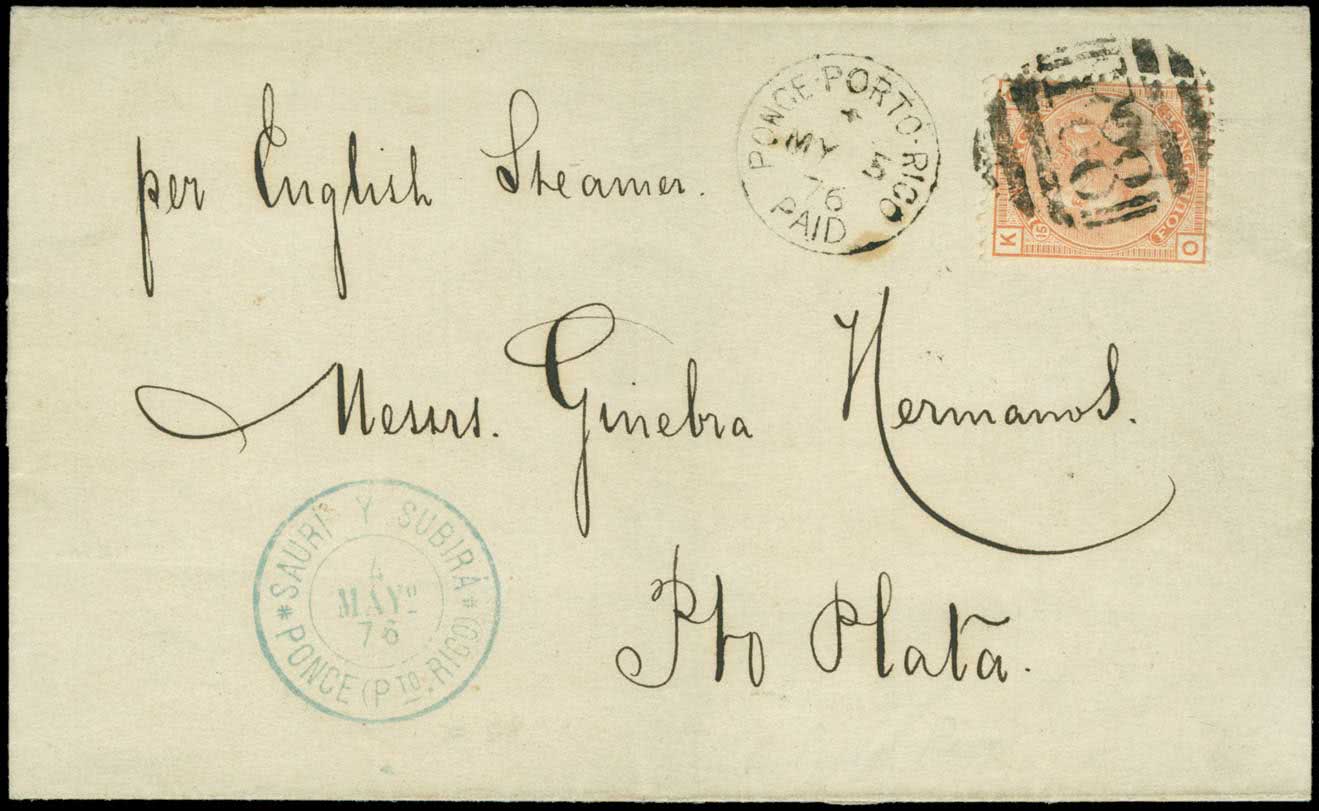 per English Steamer.
PONCE · PORTO · RICO
MY 5
76
PAID
C88
FOUR
K
15
O
Messrs. Ginebra Hermanos.
Pto Plata.
* SAURÍ Y SUBIRÁ *
MAYO
76
PONCE (PTO. RICO)